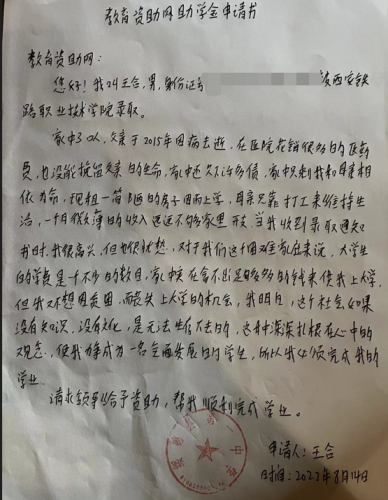 教育资助网助学金申请书
教育资助网:
您好!我叫王合,男,身份证号 被西安铁
路职业技术学院录取。
家中3口人,父亲于2015年因病去逝,在医院花销很多的医药
费,也没能挽留父亲的生命,家中还欠下许多债,家中只剩我和母亲相
依为命,现租一简陋的房子因而上学,母亲只靠打工来维持生
活,一月微薄的收入远远不够家里开支,当我收到录取通知
书时,我很高兴,但也很忧愁,对于我们这个困难家庭来说,大学生
的学费是个不少的数目,家中实在拿不出足够多的钱来供我上大学,
但我不想因贫困而丧失上大学的机会,我明白,这个社会如果
没有知识,没有文化,是无法生存下去的,这种深深扎根在心中的
观念,使我力争成为一名全面发展的学生,所以我必须完成我的
学业。
请求领导给予资助,帮我顺利完成学业。
申请人:王合
时间:2022年8月14日